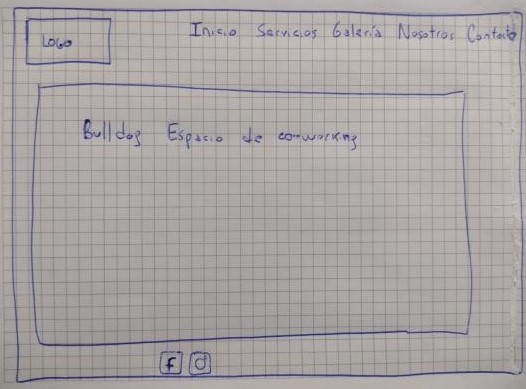 LOGO
Inicio Servicios Galería Nosotros Contacto
Bulldog Espacio de coworking
f